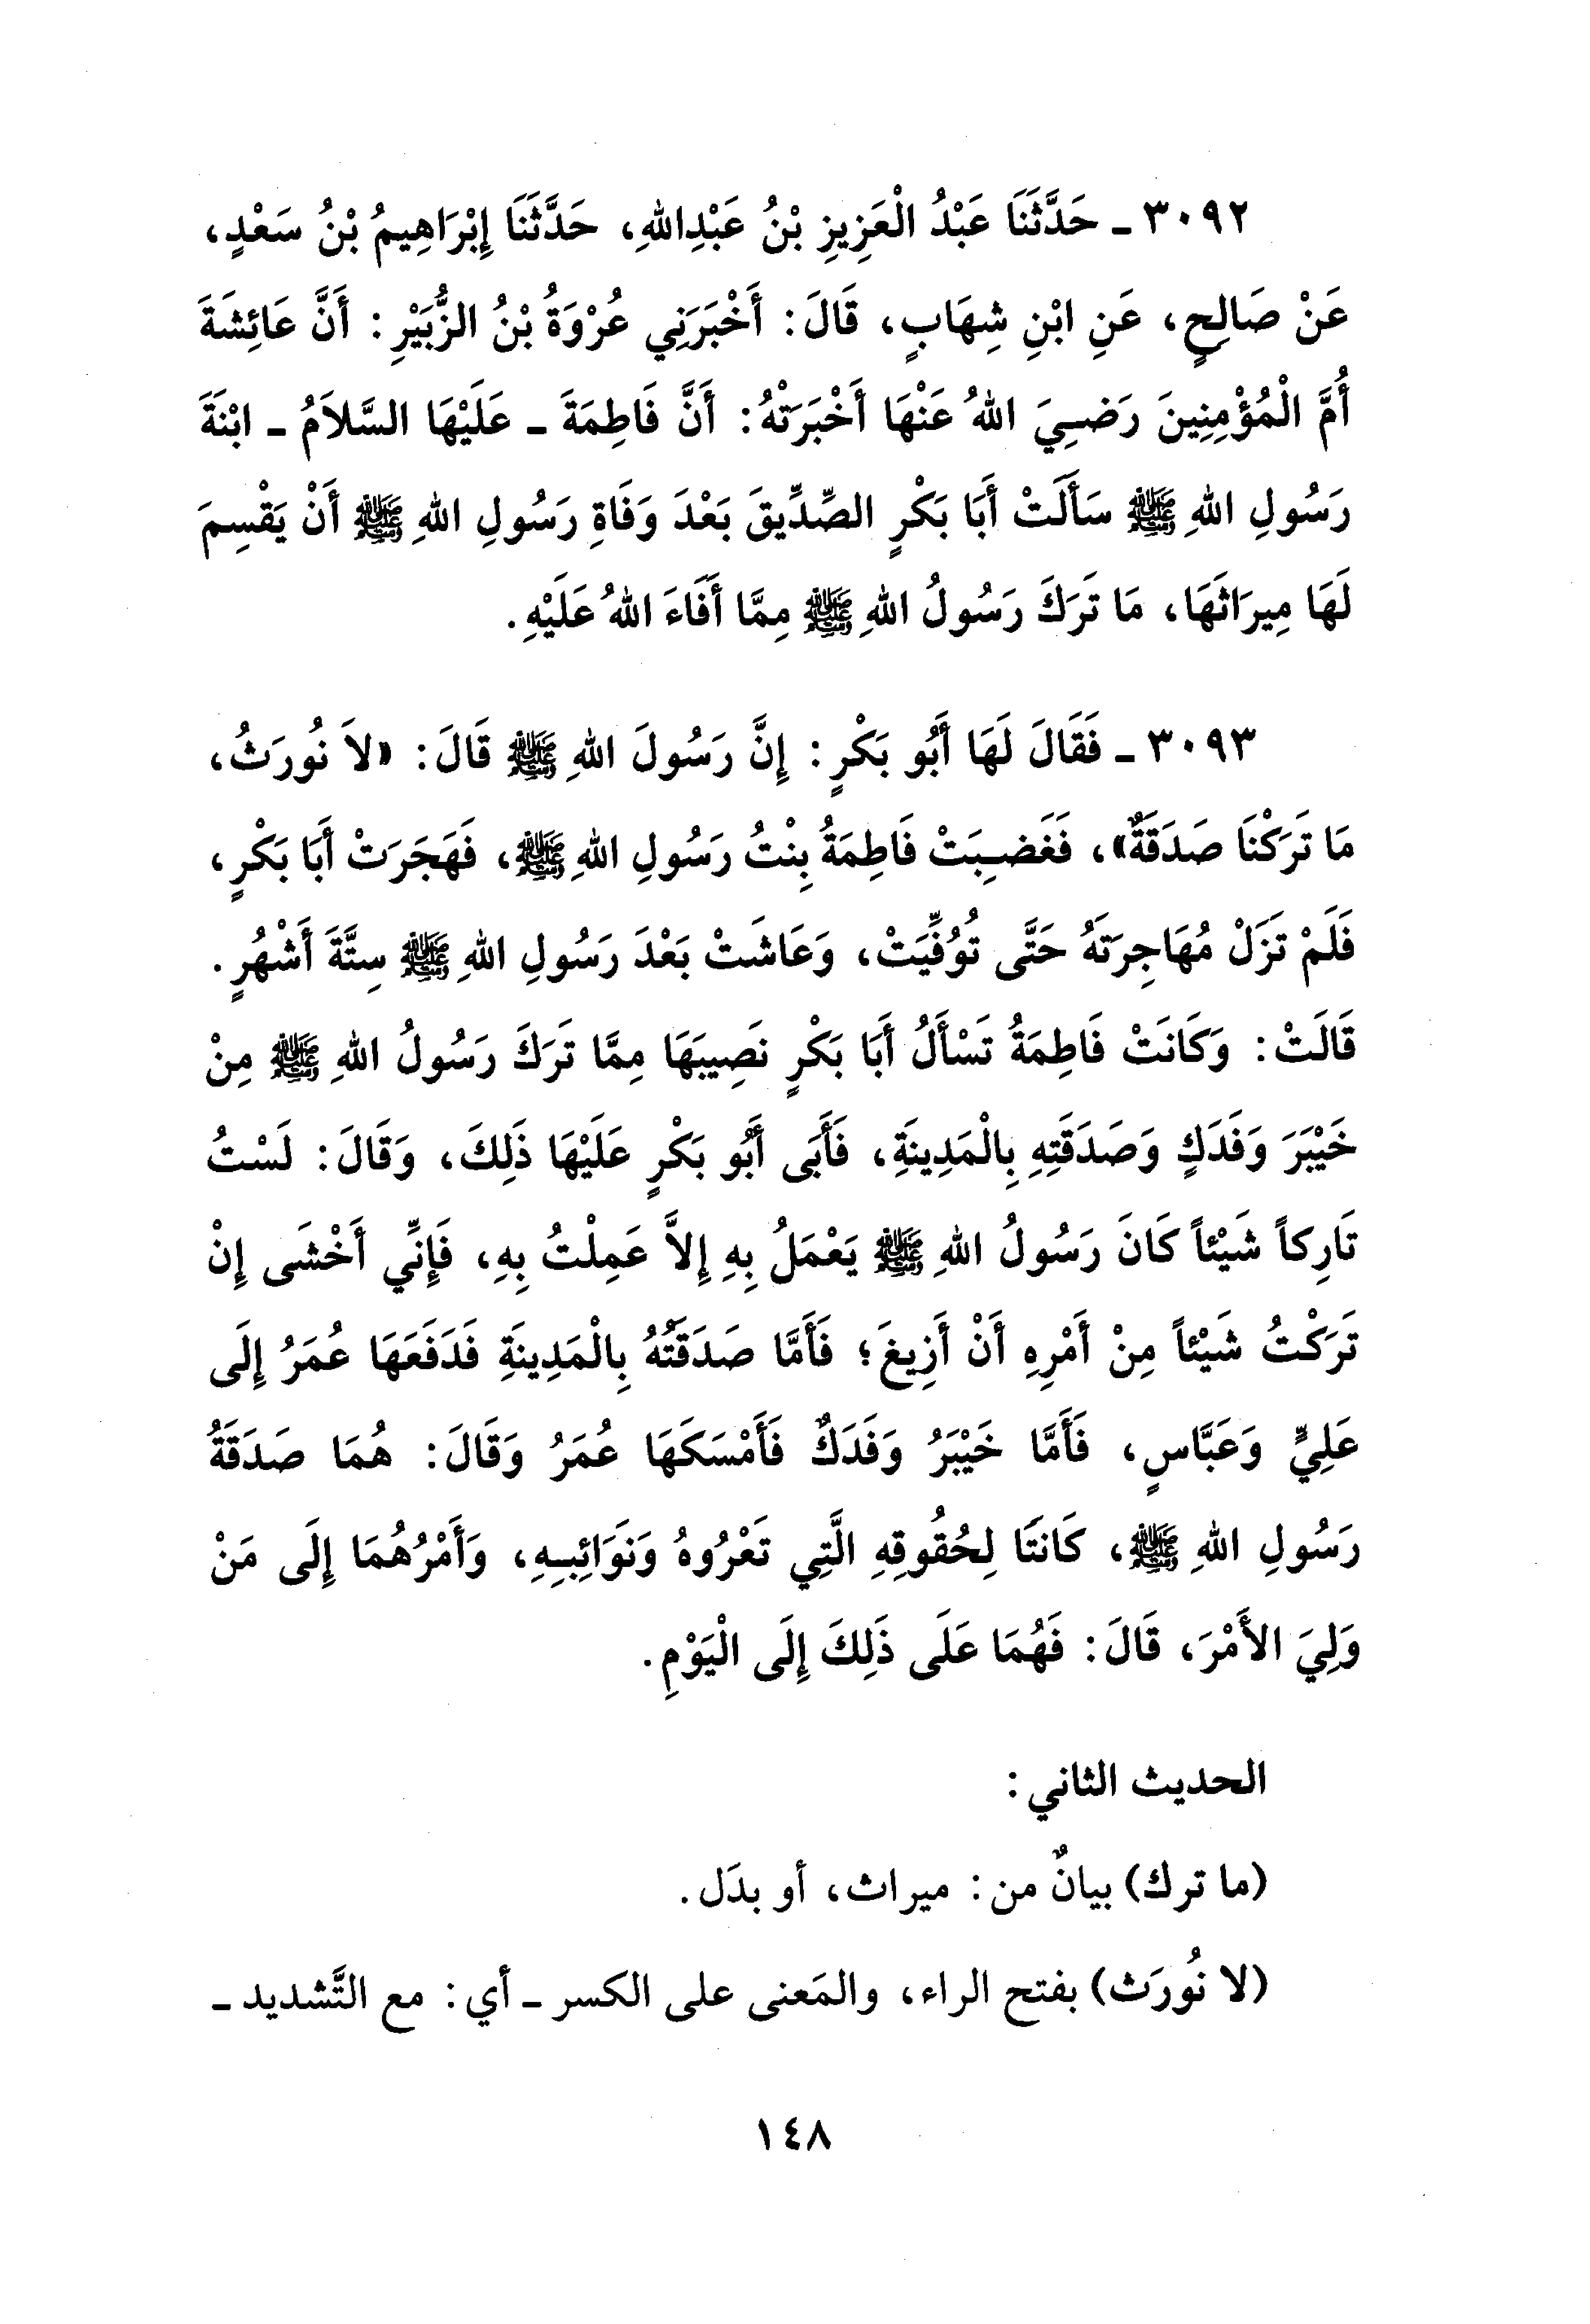 ٣٠٩٢ ـ حَدَّثَنَا عَبْدُ الْعَزِيزِ بْنُ عَبْدِاللهِ، حَدَّثَنَا إِبْرَاهِيمُ بْنُ سَعْدٍ،
عَنْ صَالِحٍ، عَنِ ابْنِ شِهَابٍ، قَالَ: أَخْبَرَنِي عُرْوَةُ بْنُ الزُّبَيْرِ: أَنَّ عَائِشَةَ
أُمَّ الْمُؤْمِنِينَ رَضِيَ اللهُ عَنْهَا أَخْبَرَتْهُ: أَنَّ فَاطِمَةَ ـ عَلَيْهَا السَّلاَمُ ـ ابْنَةَ
رَسُولِ اللهِ ﷺ سَأَلَتْ أَبَا بَكْرٍ الصِّدِّيقَ بَعْدَ وَفَاةِ رَسُولِ اللهِ ﷺ أَنْ يَقْسِمَ
لَهَا مِيرَاثَهَا، مَا تَرَكَ رَسُولُ اللهِ ﷺ مِمَّا أَفَاءَ اللهُ عَلَيْهِ.
٣٠٩٣ ـ فَقَالَ لَهَا أَبُو بَكْرٍ: إِنَّ رَسُولَ اللهِ ﷺ قَالَ: «لاَ نُورَثُ،
مَا تَرَكْنَا صَدَقَةٌ»، فَغَضِبَتْ فَاطِمَةُ بِنْتُ رَسُولِ اللهِ ﷺ، فَهَجَرَتْ أَبَا بَكْرٍ،
فَلَمْ تَزَلْ مُهَاجِرَتَهُ حَتَّى تُوُفِّيَتْ، وَعَاشَتْ بَعْدَ رَسُولِ اللهِ ﷺ سِتَّةَ أَشْهُرٍ.
قَالَتْ: وَكَانَتْ فَاطِمَةُ تَسْأَلُ أَبَا بَكْرٍ نَصِيبَهَا مِمَّا تَرَكَ رَسُولُ اللهِ ﷺ مِنْ
خَيْبَرَ وَفَدَكٍ وَصَدَقَتِهِ بِالْمَدِينَةِ، فَأَبَى أَبُو بَكْرٍ عَلَيْهَا ذَلِكَ، وَقَالَ: لَسْتُ
تَارِكاً شَيْئاً كَانَ رَسُولُ اللهِ ﷺ يَعْمَلُ بِهِ إِلاَّ عَمِلْتُ بِهِ، فَإِنِّي أَخْشَى إِنْ
تَرَكْتُ شَيْئاً مِنْ أَمْرِهِ أَنْ أَزِيغَ؛ فَأَمَّا صَدَقَتُهُ بِالْمَدِينَةِ فَدَفَعَهَا عُمَرُ إِلَى
عَلِيٍّ وَعَبَّاسٍ، فَأَمَّا خَيْبَرُ وَفَدَكٌ فَأَمْسَكَهَا عُمَرُ وَقَالَ: هُمَا صَدَقَةُ
رَسُولِ اللهِ ﷺ، كَانَتَا لِحُقُوقِهِ الَّتِي تَعْرُوهُ وَنَوَائِبِهِ، وَأَمْرُهُمَا إِلَى مَنْ
وَلِيَ الأَمْرَ، قَالَ: فَهُمَا عَلَى ذَلِكَ إِلَى الْيَوْمِ.
الحديث الثاني:
(ما ترك) بيانٌ من: ميراث، أو بدَل.
(لا نُورَث) بفتح الراء، والمَعنى على الكسر ـ أي: مع التَّشديد ـ
١٤٨